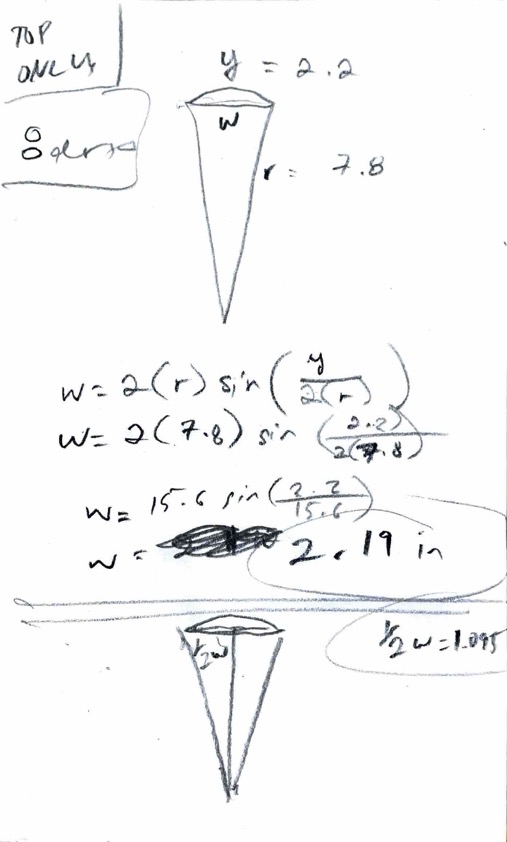 TOP
ONLY
y = 2.2
w
r = 7.8
w = 2(r) sin(y/2(r))
w = 2(7.8) sin(2.2/2(7.8))
w = 15.6 sin(2.2/15.6)
w = 2.19 in
1/2 w = 1.095
1/2 w